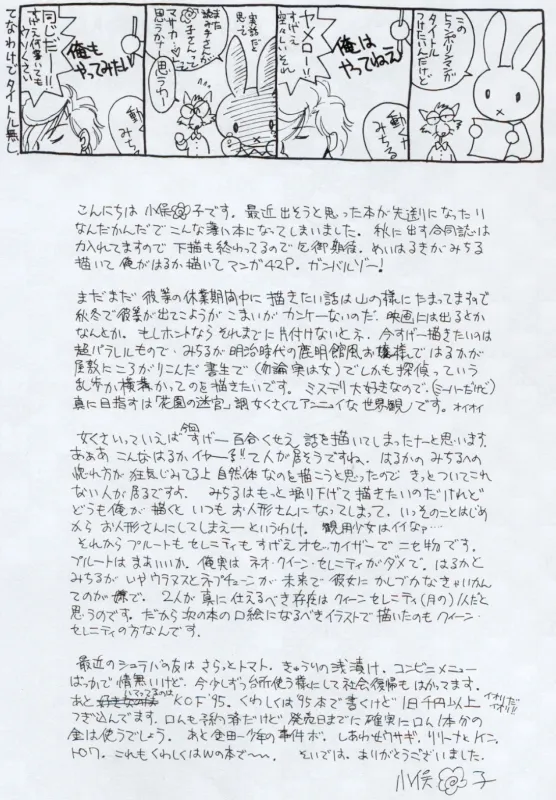 このトランポリンマンガタイトルつけたいんだけど
俺はやってねえ
動くなみちる
ヤメロー!!
すげえ空々しいそれ
実話だと思って
読み子さんが
マサカ 子さんって思うわー
思うわー
俺もやってみたい
動くなみちる
同じだー!!
すげえ何書いてもウソくさい
てなわけでタイトル無し
こんにちは 小俣子です。最近出そうと思った本が先送りになったり
なんだかんだでこんな薄い本になってしまいました。秋に出す合同誌は
力入れてますので下描も終わってるので乞御期待。めいはるきがみちる
描いて俺がはるか描いてマンガ42P。ガンバルゾー!
まだまだ彼等の休業期間中に描きたい話は山の様にたまってますので
秋冬で彼等が出てこようがこまいがカンケーないのだ。映画には出るとか
なんとか。もしホントならそれまでに片付けないとネ。今すげー描きたいのは
超パラレルもので、みちるが明治時代の鹿明館風お嬢様で はるかが
屋敷にころがりこんだ書生で(勿論実は女)でしかも探偵っていう
乱歩か横溝かってのを描きたいです。ミステリ大好きなので。(ミーハーだけど)
真に目指すは「花園の迷宮」調女くさくてアンニュイな世界観)です。オイオイ
女くさいっていえば今回すげー百合くせえ話を描いてしまったナーと思います。
あああ こんなはるかイヤーる!!て人が居そうですね。はるかのみちるへの
惚れ方が狂気じみてる上自然体なのを描こうと思ったので きっとついてこれ
ない人が居るですよ。みちるはもっと掘り下げて描きたいのだけれど
どうも俺が描くと いつもお人形さんになってしまって。いっそのことはじめ
から お人形さんにしてしまえーというわけ。観用少女はイイなァ…
それから プルートもセレニティもすげえオセッカイザーでニセ物です。
プルートはまあいいか。俺実は ネオ・クイーン・セレニティがダメで。はるかと
みちるが しやウラヌスとネプチューンが 未来で彼女にかしづかなきゃいかん
てのが嫌で。2人が真に仕えるべき存在はクイーンセレニティ(月の)1人だと
思うのです。だから次の本の口絵になるべきイラストで描いたのもクイーン・
セレニティの方なんです。
最近のシュラバの友は さらっとトマト、きゅうりの浅漬け、コンビニメニュー
ばっかで情無いけど、今少しずつ台所使う様にして社会復帰もはかってます。
あと ハマってるのは KOF'95。くわしくは'95本で書くけど1日千円以上
イオリだイオリ!!
つぎ込んでます。ロムも予約済だけど発売日までに確実にロム1本分の
金は使うでしょう。あと金田一少年の事件ボ、しあわせウサギ、リリーナとヒイロ、
トロワ。これもくわしくはWの本で〜。そいでは。ありがとうございました。
小俣子